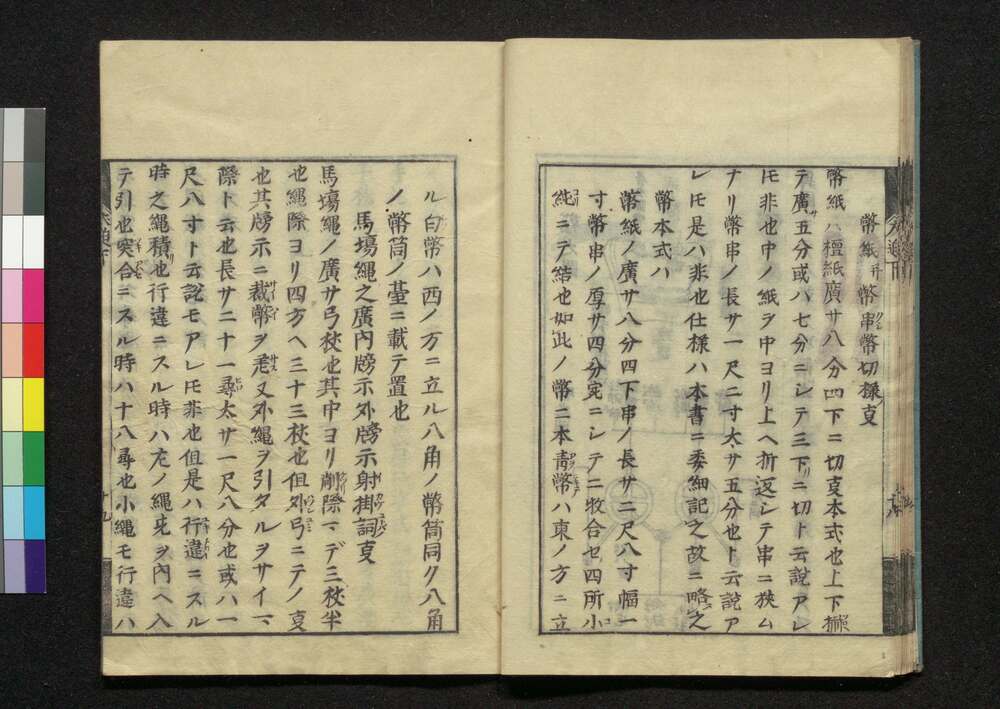 幣紙并幣串幣切様叓
幣紙ハ檀紙廣サ八分四下ニ切叓本式也上下獅
テ廣五分或ハ七分ニシテ三下リニ切ト云說アレ
𪜈非也中ノ紙ヲ中ヨリ上ヘ折返シテ串ニ狹ム
ナリ幣串ノ長サ一尺二寸大サ五分也ト云說ア
レ𪜈是ハ非也仕様ハ本書ニ委細記之故ニ略之
幣本式ハ
幣紙ノ廣サ八分四下串ノ長サ二尺八寸幅一
寸幣串ノ厚サ四分宛ニシテ二牧合セ四所小
純ニテ結也如此ノ幣二本青幣ハ東ノ方ニ立
ル白幣ハ西ノ方ニ立ル八角ノ幣筒同ク八角
ノ幣筒ノ臺ニ載テ置也
馬塲繩之廣內牓示外牓示射掛詞叓
馬塲繩ノ廣サ弓杖也其中ヨリ削際マデ三杖半
也繩際ヨリ四方ヘ三十三杖也但外弓ニテノ叓
也其牓示ニ裁幣ヲ指又外繩ヲ引タルヲサイマ
際ト云也長サ二十一尋太サ一尺八分也或ハ一
尺八寸ト云說モアレ𪜈非也但是ハ行違ニスル
時之繩積也行違ニスル時ハ左ノ繩先ヲ內ヘ入
テ引也突合ニスル時ハ十八尋也小繩モ行違ハ